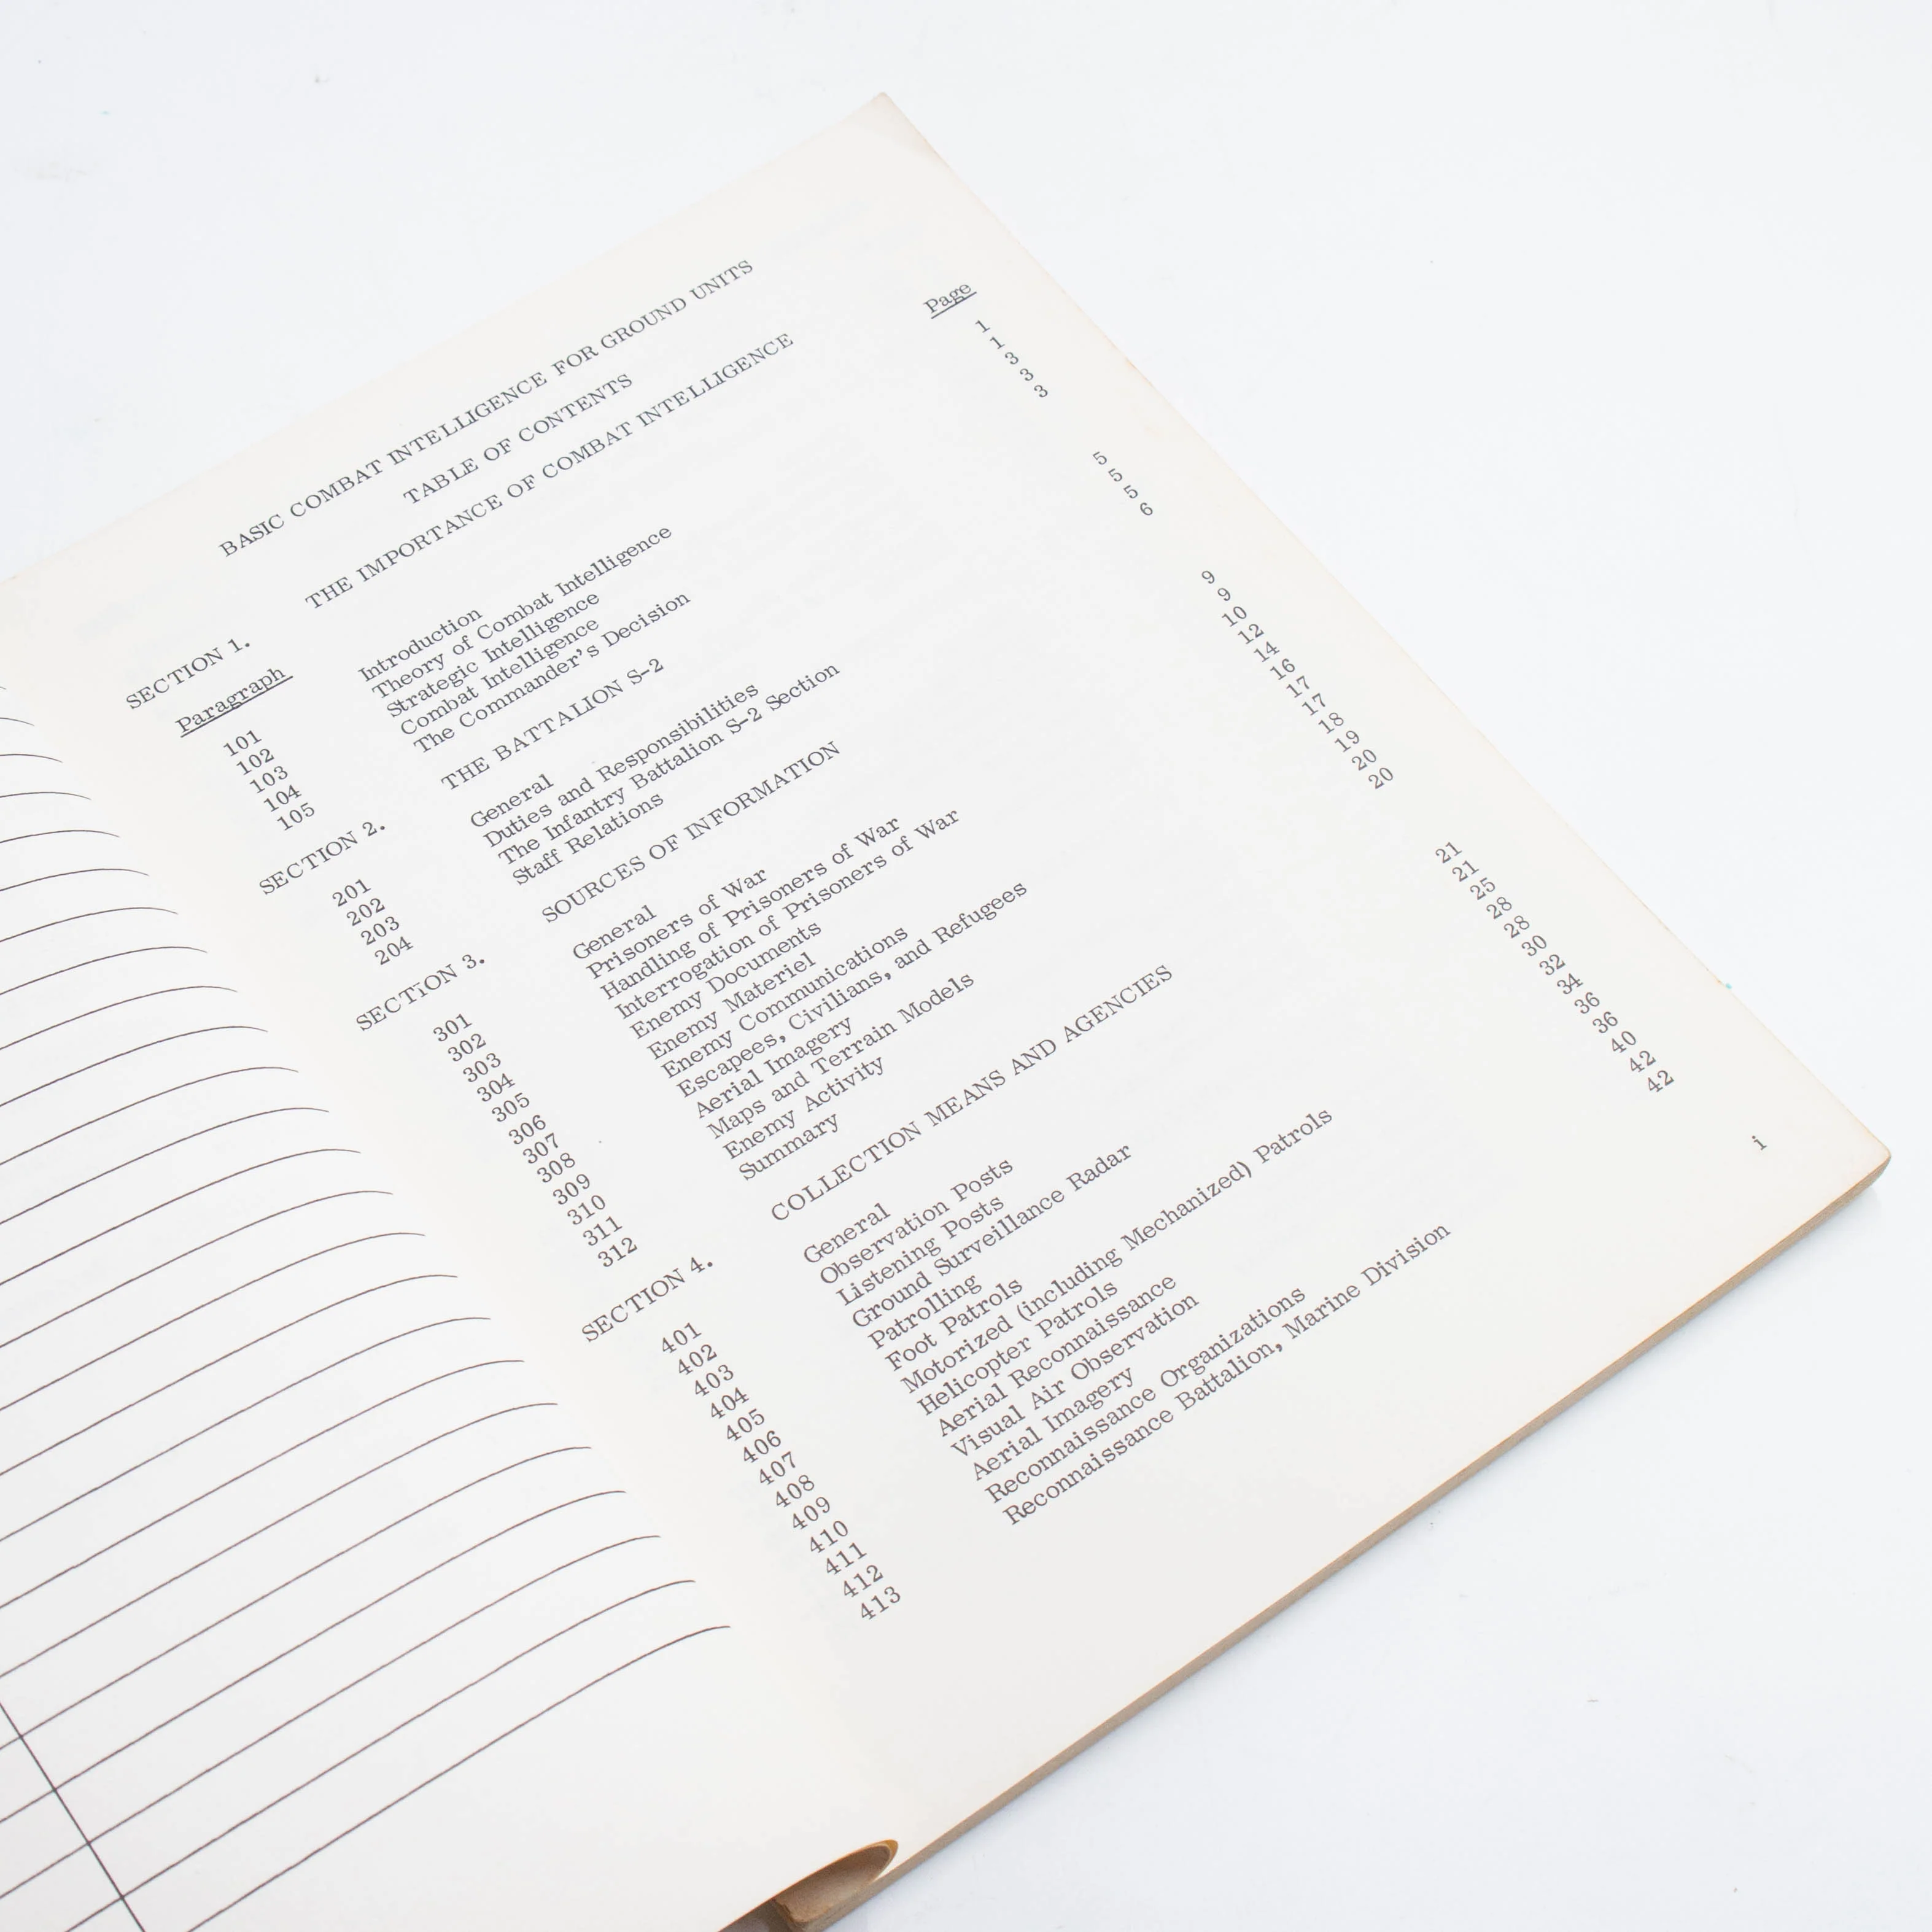 BASIC COMBAT INTELLIGENCE FOR GROUND UNITS
TABLE OF CONTENTS
SECTION 1. THE IMPORTANCE OF COMBAT INTELLIGENCE
Paragraph Page
101 Introduction 1
102 Theory of Combat Intelligence 1
103 Strategic Intelligence 3
104 Combat Intelligence 3
105 The Commander's Decision 3
SECTION 2. THE BATTALION S-2
201 General 5
202 Duties and Responsibilities 5
203 The Infantry Battalion S-2 Section 5
204 Staff Relations 6
SECTION 3. SOURCES OF INFORMATION
301 General 9
302 Prisoners of War 9
303 Handling of Prisoners of War 10
304 Interrogation of Prisoners of War 12
305 Enemy Documents 14
306 Enemy Materiel 16
307 Enemy Communications 17
308 Escapees, Civilians, and Refugees 17
309 Aerial Imagery 18
310 Maps and Terrain Models 19
311 Enemy Activity 20
312 Summary 20
SECTION 4. COLLECTION MEANS AND AGENCIES
401 General 21
402 Observation Posts 21
403 Listening Posts 25
404 Ground Surveillance Radar 28
405 Patrolling 28
406 Foot Patrols 30
407 Motorized (including Mechanized) Patrols 32
408 Helicopter Patrols 34
409 Aerial Reconnaissance 36
410 Visual Air Observation 36
411 Aerial Imagery 40
412 Reconnaissance Organizations 42
413 Reconnaissance Battalion, Marine Division 42
i